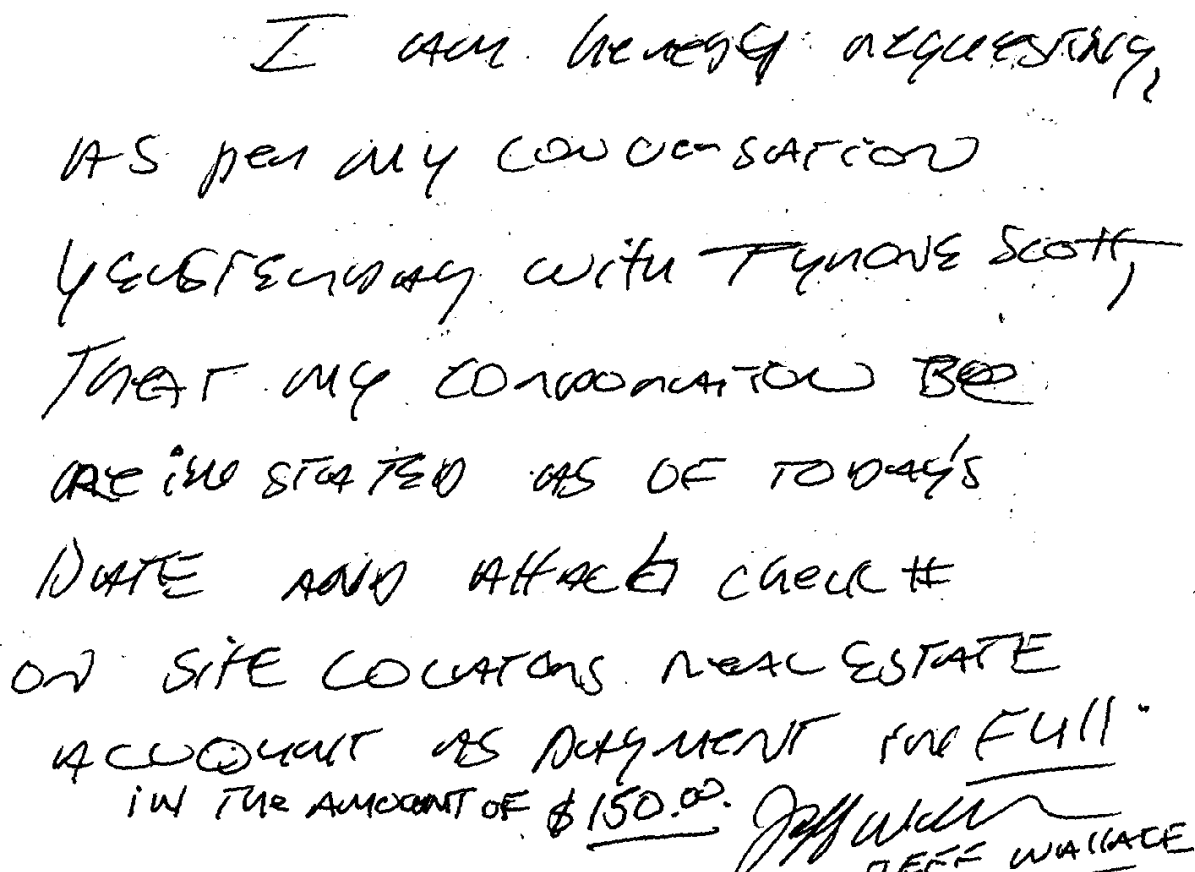 I am hereby requesting,
AS per my conversation
yesterday with Tyrone Scott,
That my corporation BE
reinstated as of today's
DATE AND Attach check #
on SITE LOCATORS REAL ESTATE
ACCOUNT AS PAYMENT in FUll
in The AMOUNT OF $150.00.
Jeff Wallace
JEFF WAllACE